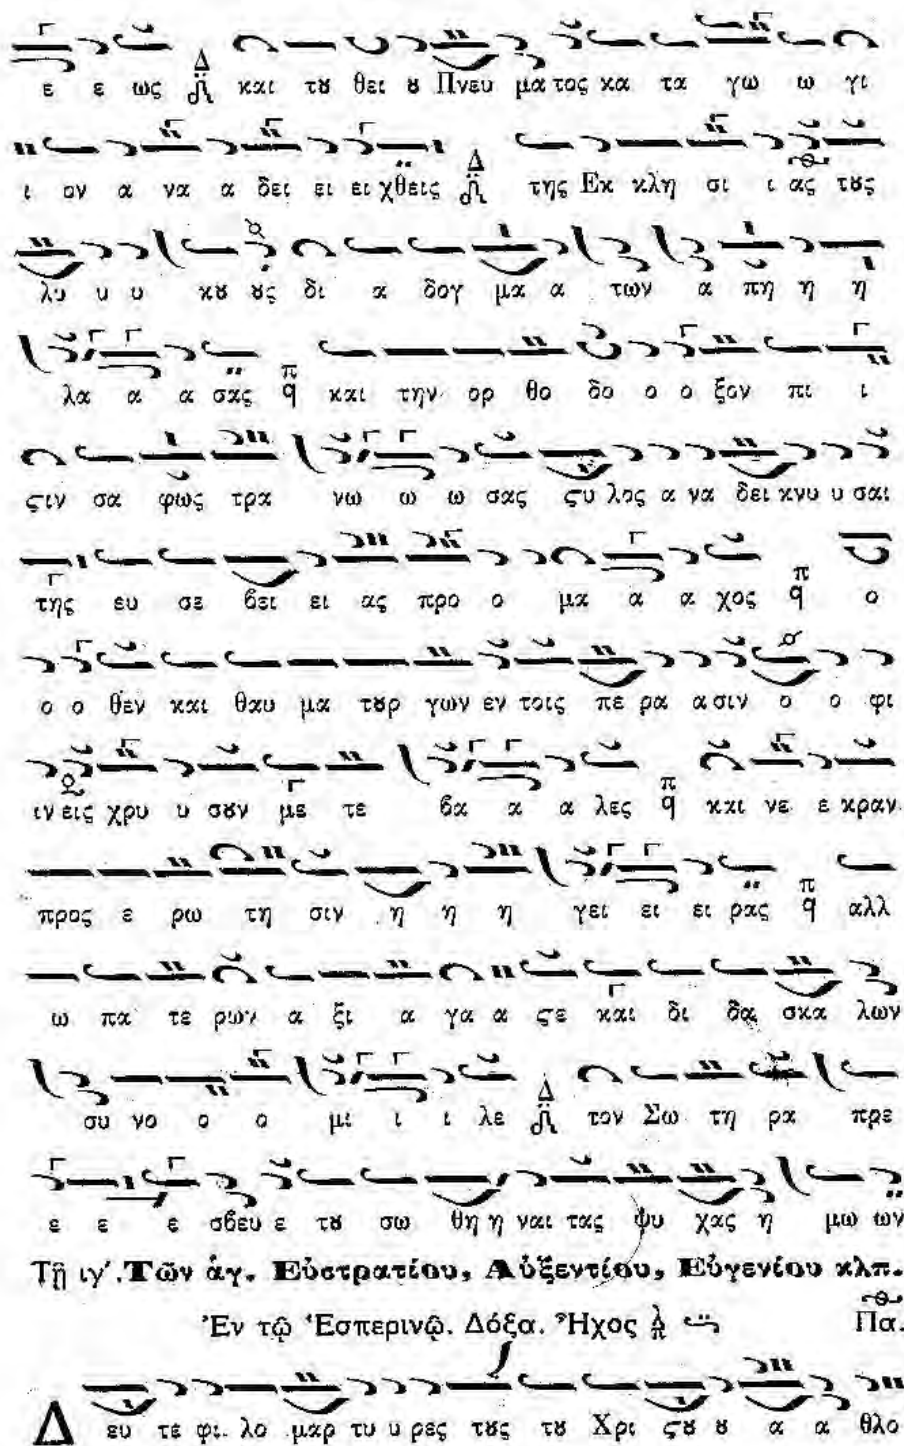 ε ε ως Δ και τȣ θει ȣ Πνευ μα τος κα τα γω ω γι
ι ον α να α δει ει ει χθεις Δ της Εκ κλη σι ι ας τȣς
λυ υ υ κȣ ȣς δι α δογ μα α των α πη η η
λα α α σας π q και την ορ θο δο ο ο ξον πι ι
ϛιν σα φως τρα νω ω ω σας ϛυ λος α να δει κνυ υ σαι
της ευ σε βει ει ας προ ο μα α α χος π q ο
ο ο θεν και θαυ μα τȣρ γων εν τοις πε ρα α σιν ο ο φι
ιν εις χρυ υ σȣν με τε βα α α λες π q και νε ε κραν
προς ε ρω τη σιν η η η γει ει ει ρας π q αλλ
ω πα τε ρων α ξι α γα α ϛε και δι δα σκα λων
συ νο ο ο μι ι ι λε Δ τον Σω τη ρα πρε
ε ε ε σβευ ε τȣ σω θη η ναι τας ψυ χας η μω ων
Τῇ ιγʹ. Τῶν ἁγ. Εὐστρατίου, Αὐξεντίου, Εὐγενίου κλπ.
Ἐν τῷ Ἑσπερινῷ. Δόξα. Ἦχος Πα.
Δ ευ τε φι λο μαρ τυ υ ρες τȣς τȣ Χρι ϛȣ ȣ α α θλο